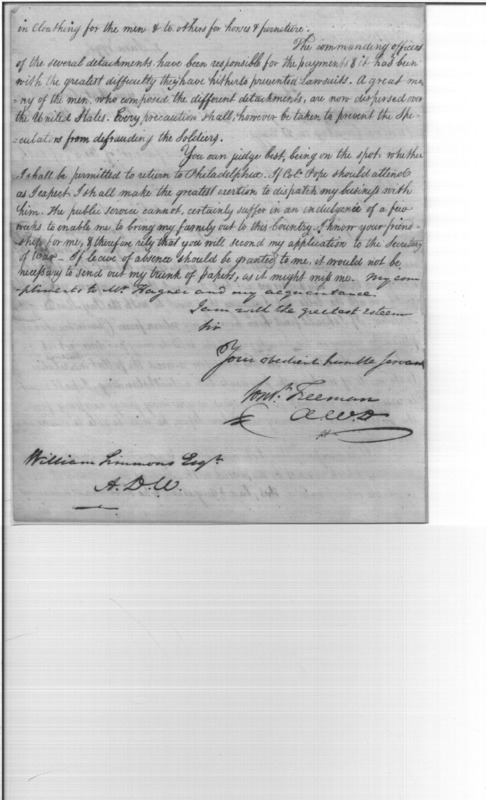 in Cloathing for the men & to others for horses & furniture.
The commanding officers
of the several detachments have been responsible for the payments & it has been
with the greatest difficulty they have hitherto prevented Lawsuits. A great ma
-ny of the men, who composed the different detachments, are now dispersed over
the United States. Every precaution shall, however be taken to prevent the Spe-
-culators from defrauding the Soldiers.
You can judge best, being on the spot, whether
I shall be permitted to return to Philadelphia. If Col. Pope should attend
as I expect I shall make the greatest exertion to dispatch my business with
him. The public service cannot, certainly suffer in an indulgence of a few
weeks to enable me to bring my family out to this Country. I know your friend-
ship for me, & therefore rely that you will second my application to the Secretary
of War. If leave of absence should be granted to me, it would not be
necessary to send out my trunk of papers, as it might miss me. My com
pliments to Mr. Hagner and my acquaintance.
I am with the greatest esteem
Sir
Your obedient humble Servant
Const. Freeman
A.W.D
William Simmons Esqr.
A.D.W.